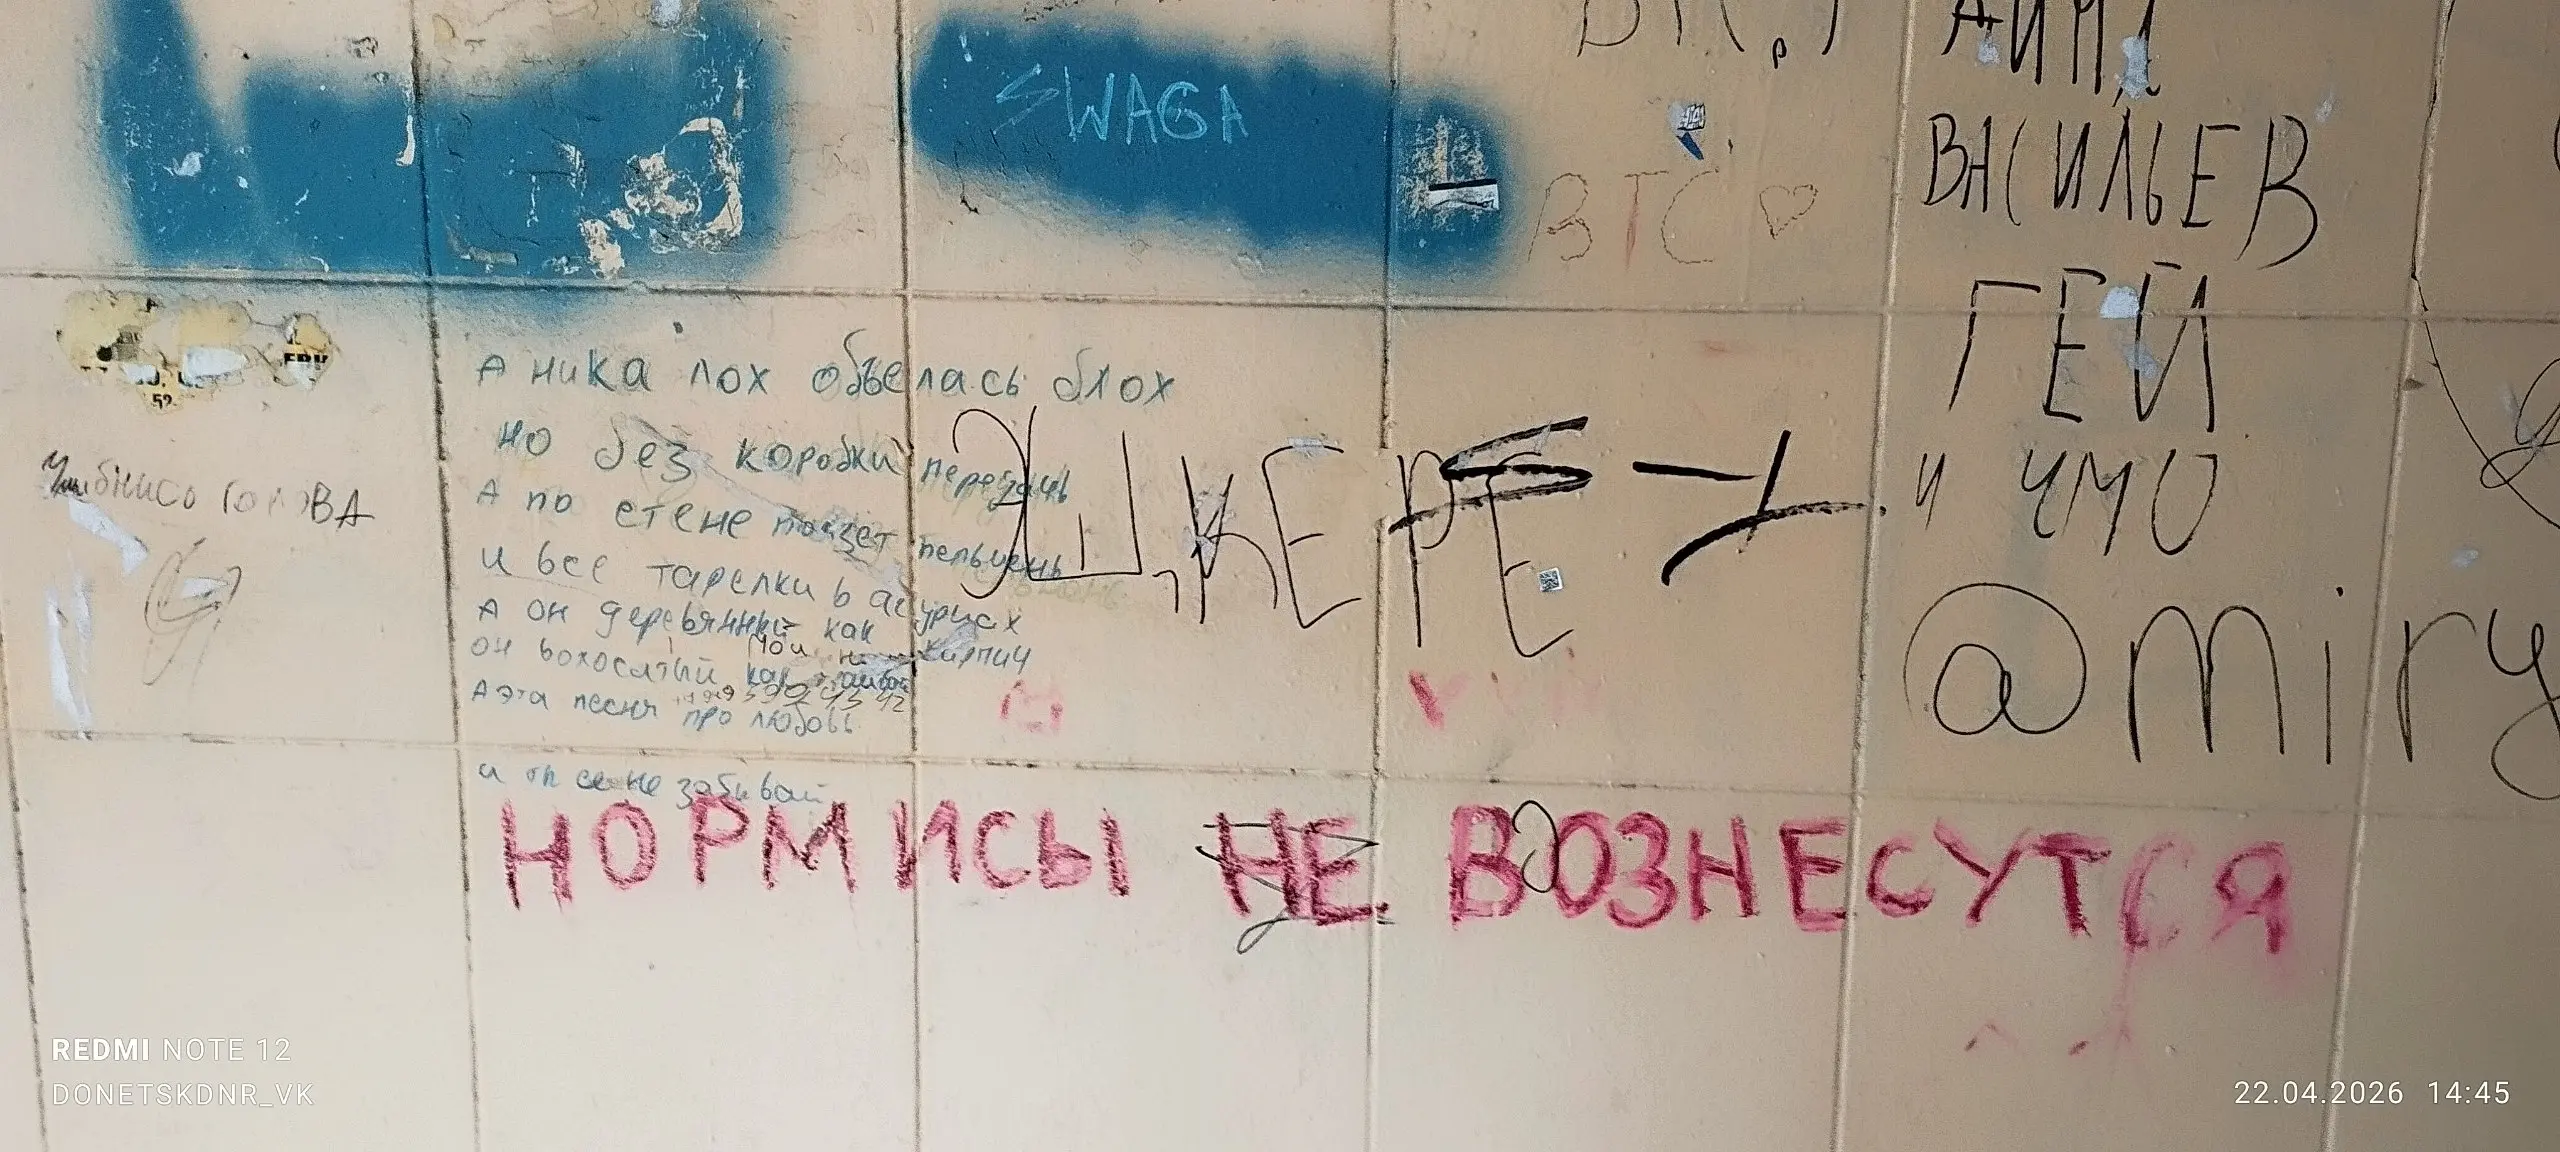 SWAGA
ВТС ♡
ВАСИЛЬЕВ
ГЕЙ
и ЧМО
@miry
52.
А ника лох объелась блох
но без коробки
А по стене ползет пельмень
и все тарелки в
А он деревянный как кирпич
он волосатый как
А эта песня про любовь
и ты ее не забывай
ЭЩКЕРЕ
НОРМИСЫ НЕ ВОЗНЕСУТСЯ
REDMI NOTE 12
DONETSKDNR_VK
22.04.2026 14:45